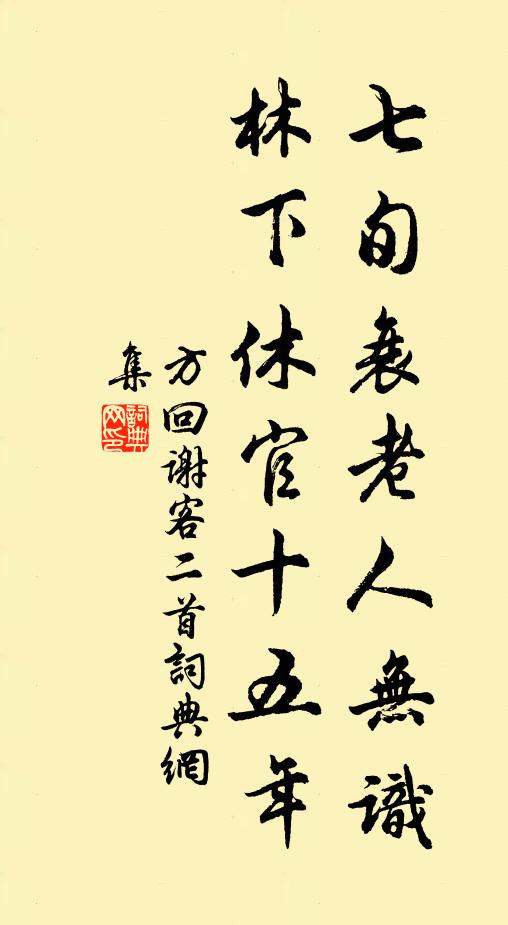 七旬衰老人無識
林下休官十五年
方回谢客二首詞典網
集
詞典
网印